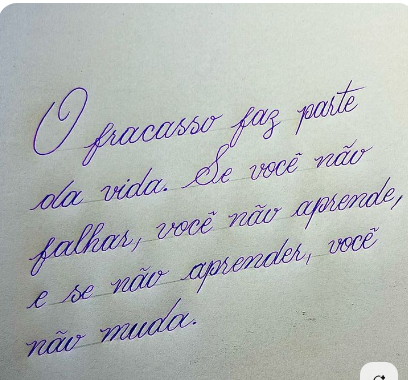 O fracasso faz parte
da vida. Se você não
falhar, você não aprende,
e se não aprender, você
não muda.